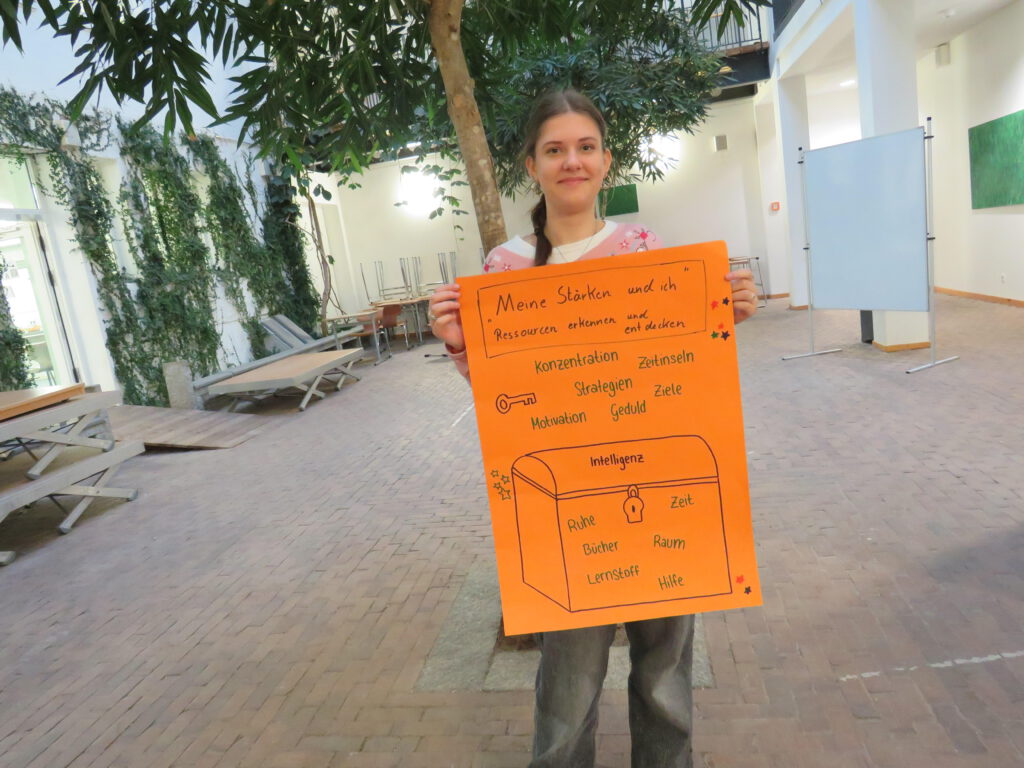 "Meine Stärken und ich"
Ressourcen erkennen und
entdecken
Konzentration Zeitinseln
Strategien Ziele
Motivation Geduld
Intelligenz
Zeit
Ruhe
Bücher Raum
Lernstoff Hilfe